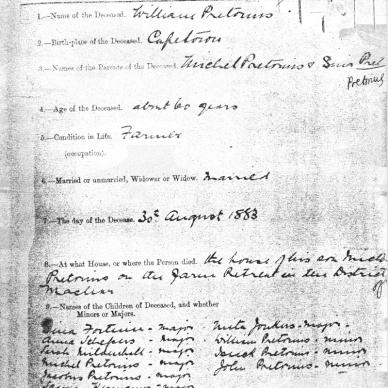 1.—Name of the Deceased. William Pretorius.
2.—Birth-place of the Deceased. Capetown
3.—Names of the Parents of the Deceased. Michel Pretorius &
Pretorius
4.—Age of the Deceased. about 60 years
5.—Condition in Life. Farmer
(occupation).
6.—Married or unmarried, Widower or Widow. Married
7.—The day of the Decease. 30th August 1883
8.—At what House, or where the Person died. the house of his son
Pretorius on the farm Retreat in the District
of
Maclear
9.—Names of the Children of Deceased, and whether
Minors or Majors.
- major - major -
Anna - major William Pretorius - minor
Sarah - major Pretorius - minor
Michel Pretorius - major John Pretorius - minor
Pretorius - major
- major